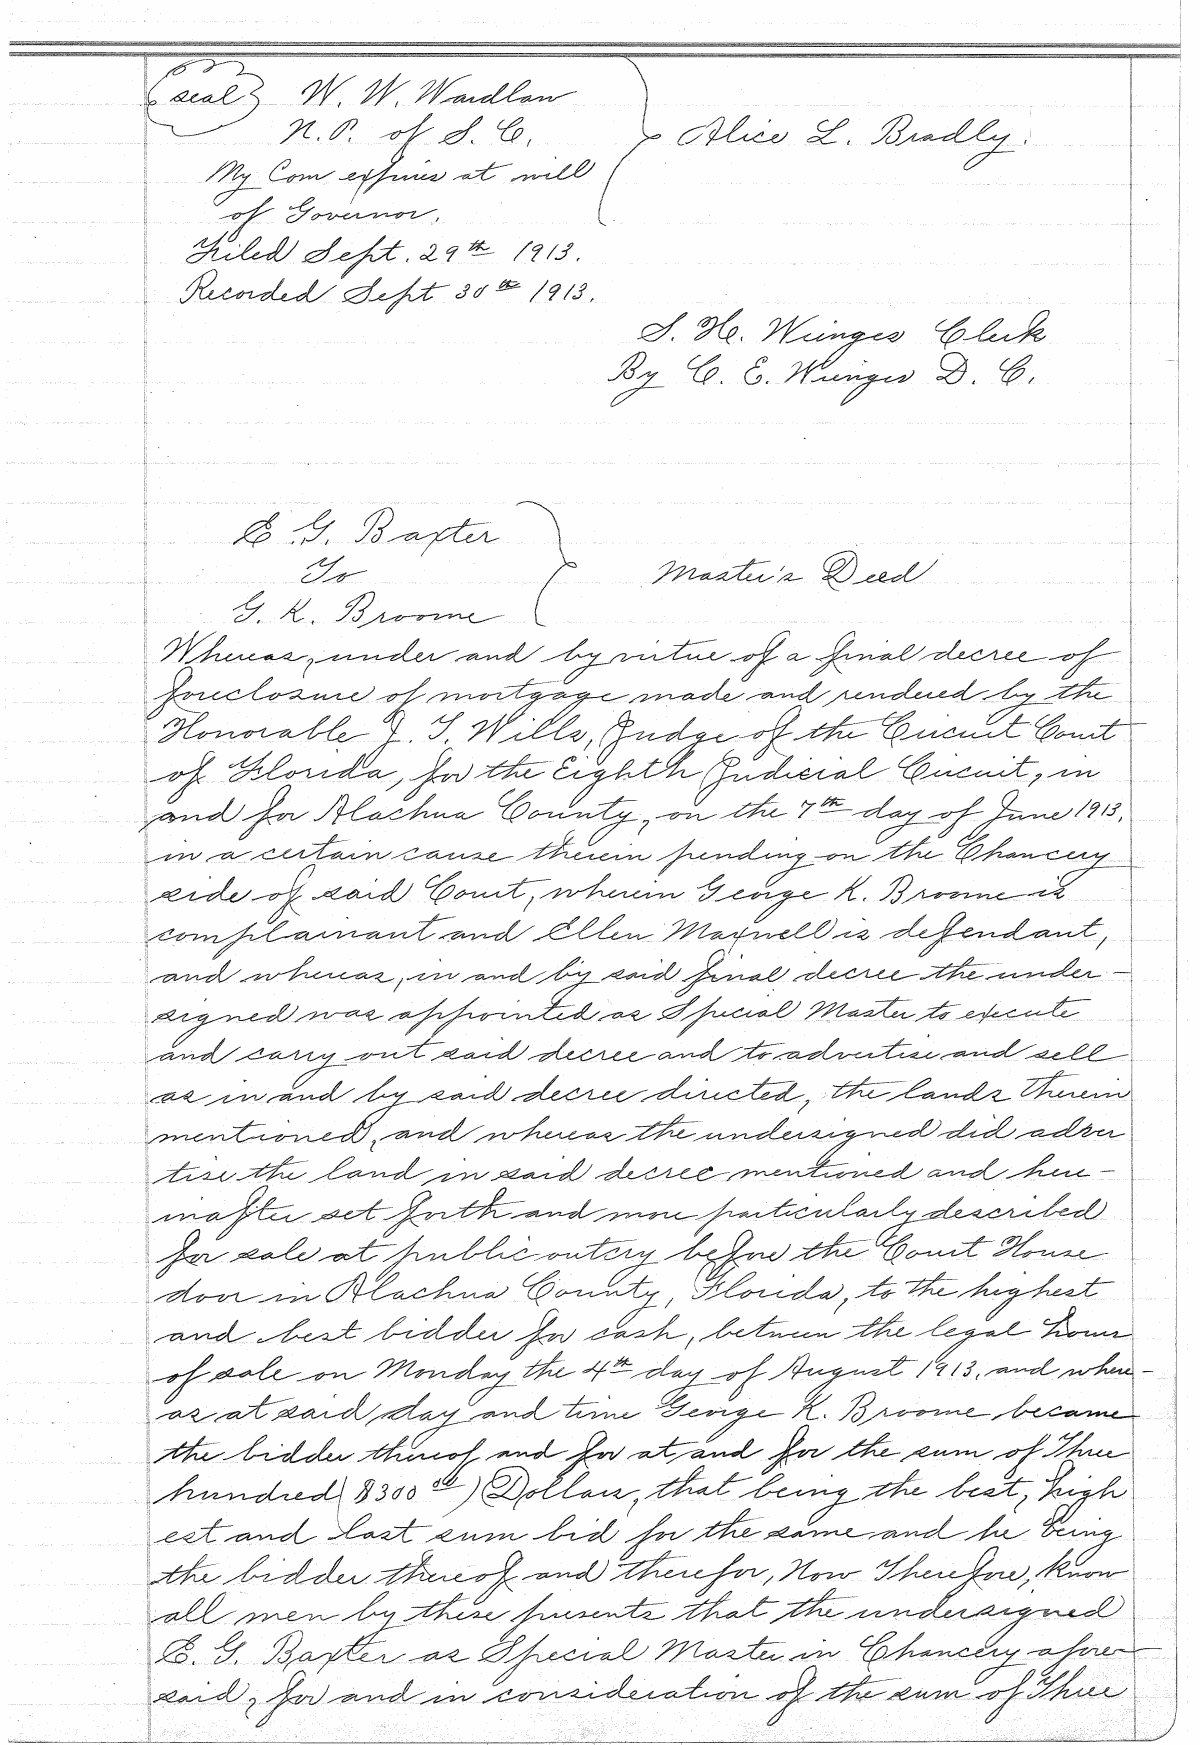 (seal) W. W. Wardlaw
N. P. of S. C.
Alice L. Bradly.
My Com expires at will
of Governor.
Filed Sept. 29th 1913.
Recorded Sept 30th 1913.
S. H. Wienges Clerk
By C. E. Wienges D. C.
E. G. Baxter
To
Master's Deed
G. K. Broome
Whereas, under and by virtue of a final decree of
foreclosure of mortgage made and rendered by the
Honorable J. T. Wills, Judge of the Circuit Court
of Florida, for the Eighth Judicial Circuit, in
and for Alachua County, on the 7th day of June 1913,
in a certain cause therein pending on the Chancery
side of said Court, wherein George K. Broome is
complainant and Ellen Maxwell is defendant,
and whereas, in and by said final decree the under-
signed was appointed as Special Master to execute
and carry out said decree and to advertise and sell
as in and by said decree directed, the lands therein
mentioned, and whereas the undersigned did adver
tise the land in said decree mentioned and here-
inafter set forth and more particularly described
for sale at public outcry before the Court House
door in Alachua County, Florida, to the highest
and best bidder for cash, between the legal hours
of sale on Monday the 4th day of August 1913, and where-
as at said day and time George K. Broome became
the bidder thereof and for at and for the sum of Three
hundred ($300 00) Dollars, that being the best, high
est and last sum bid for the same and he being
the bidder thereof and therefor, Now Therefore, know
all men by these presents that the undersigned
E. G. Baxter as Special Master in Chancery afore-
said, for and in consideration of the sum of Three